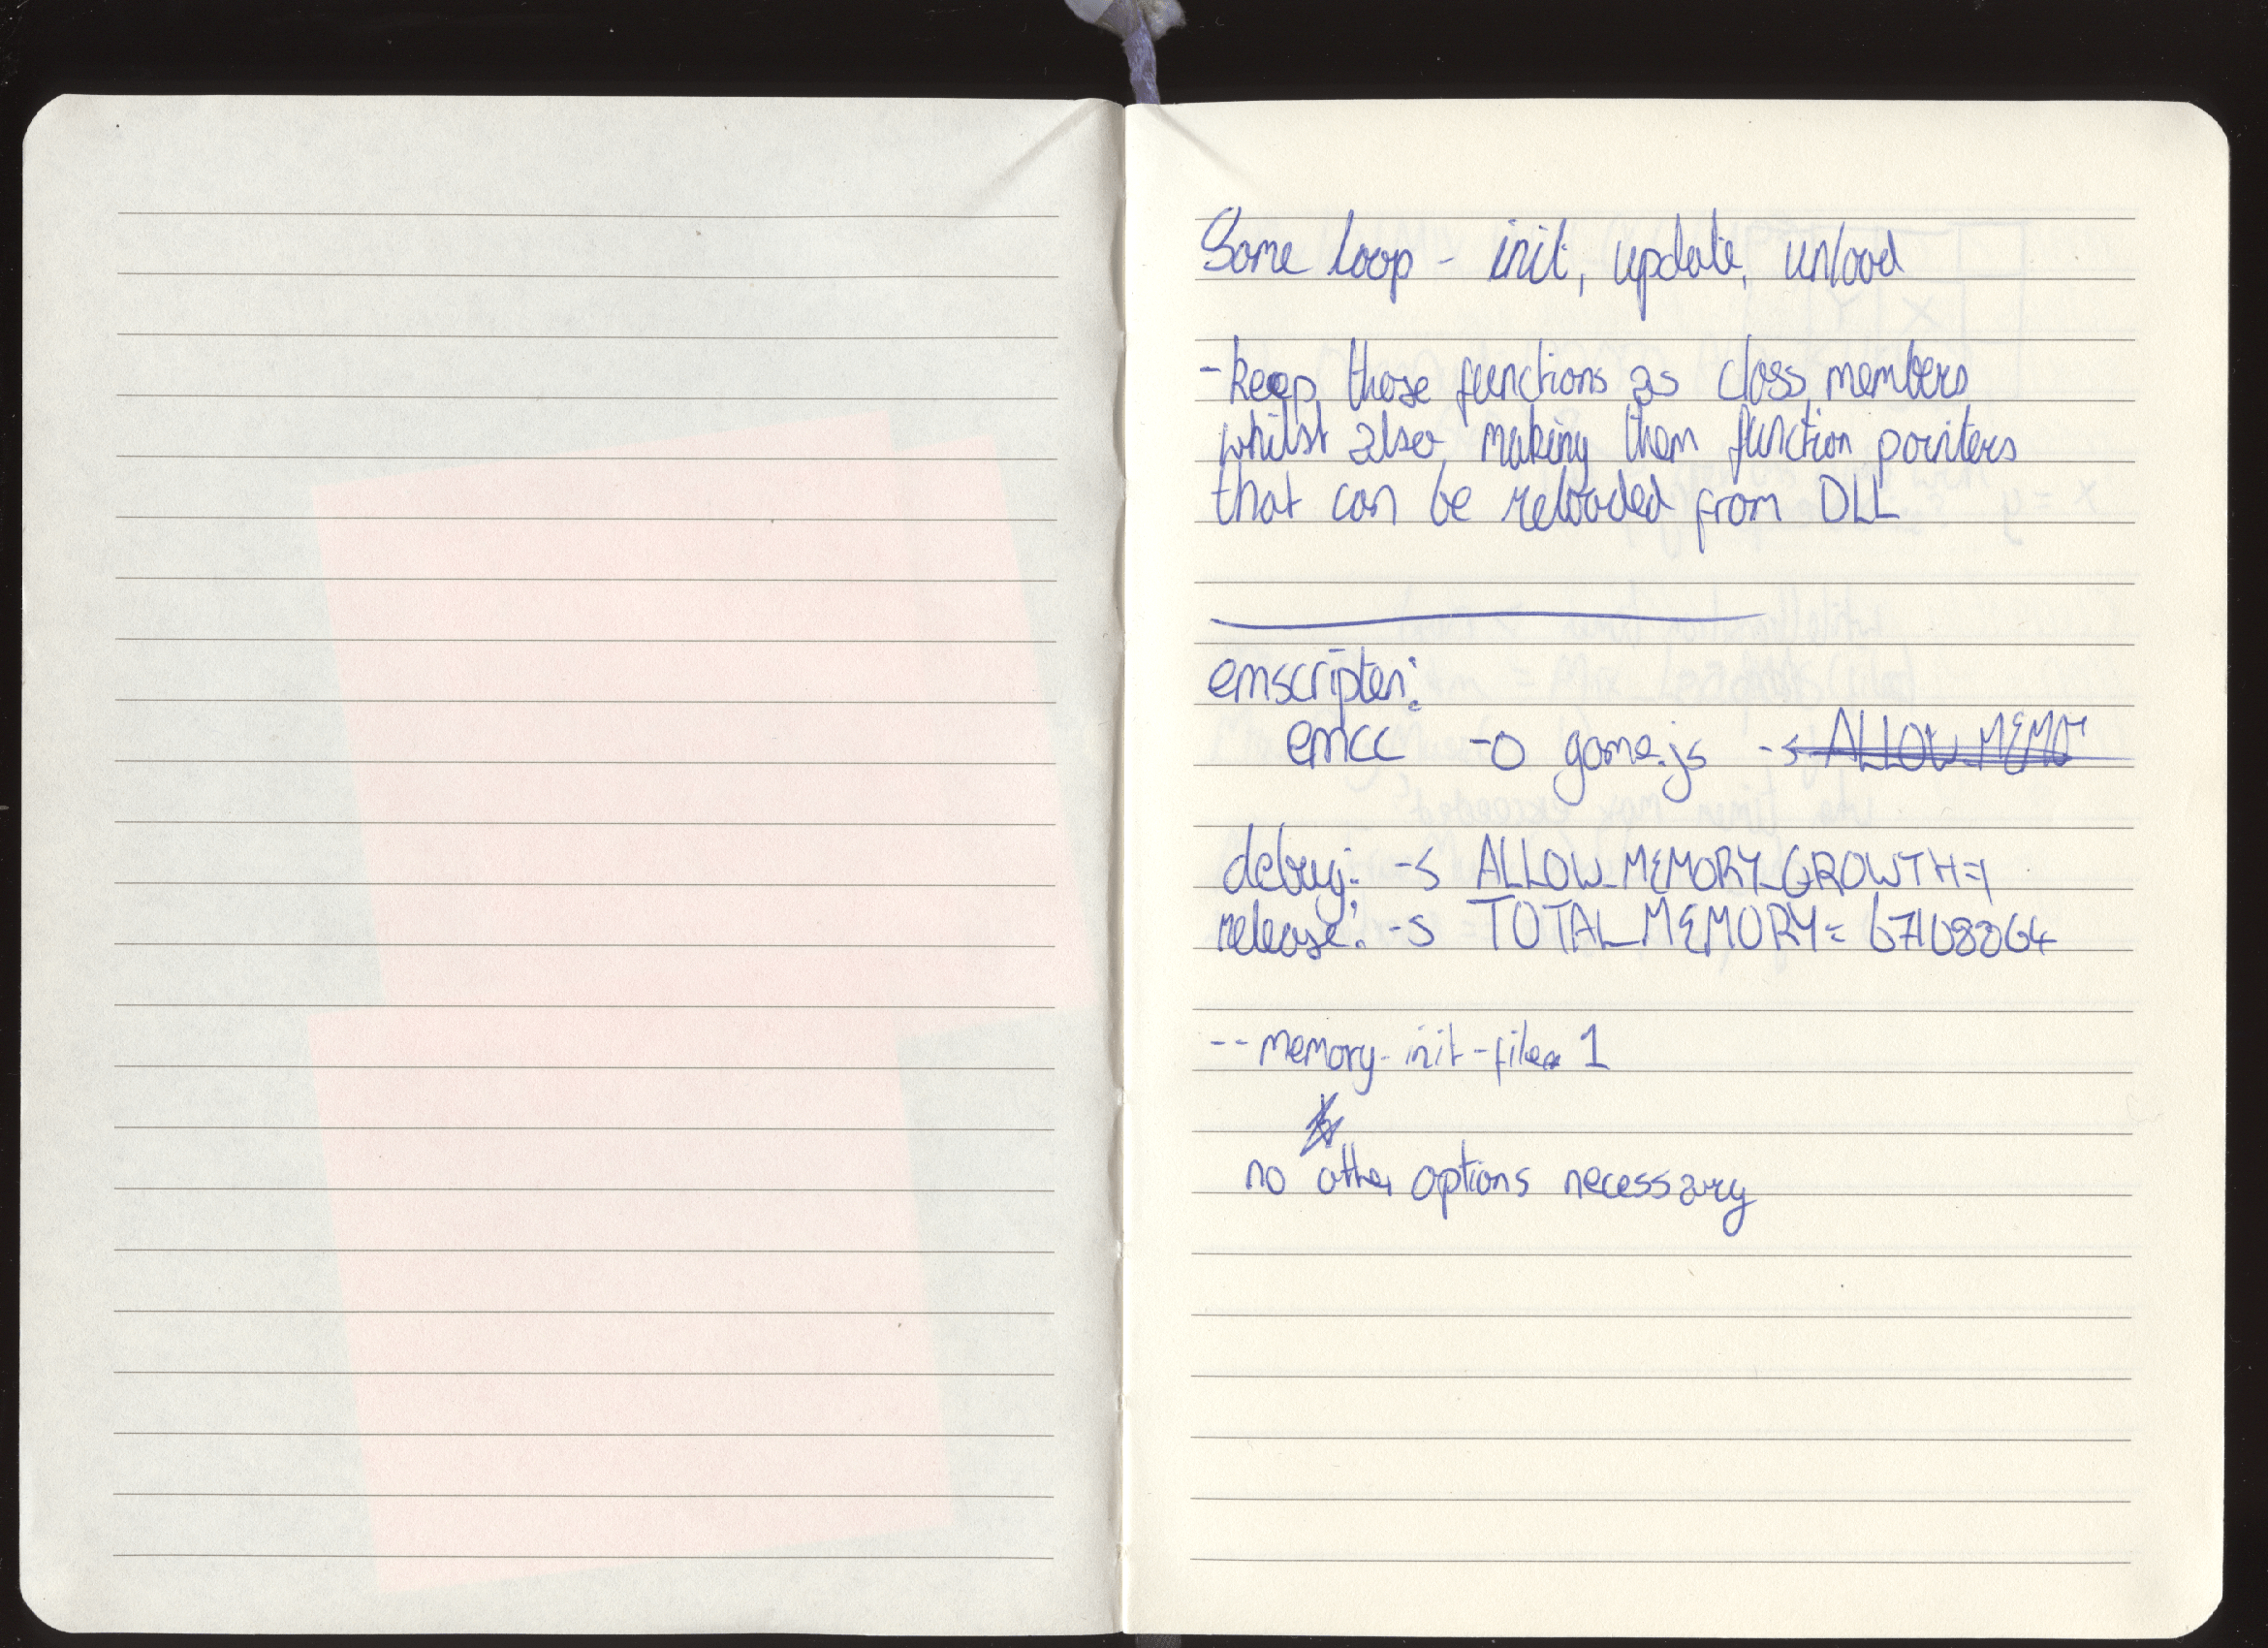 Some loop - init, update, unload
- keep those functions as class members
whilst also making them function pointers
that can be reloaded from DLL
emscripten:
emcc -o game.js -s ALLOW_MEMO
debug: -s ALLOW_MEMORY_GROWTH=1
release: -s TOTAL_MEMORY= 67108864
--memory-init-file 1
no other options necessary